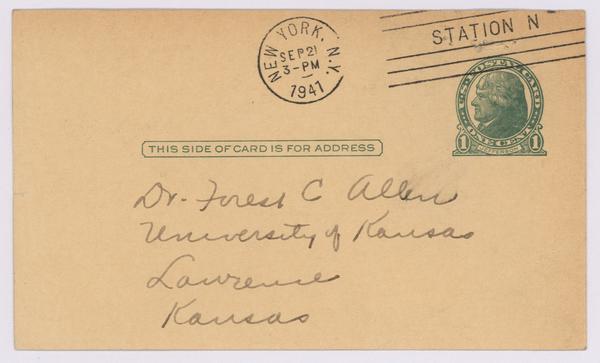 NEW YORK, N.Y.
SEP 21
3-PM
1941
STATION N
U.S. POSTAL CARD
1 ONE CENT 1
JEFFERSON
THIS SIDE OF CARD IS FOR ADDRESS
Dr. Forest C Allen
University of Kansas
Lawrence
Kansas